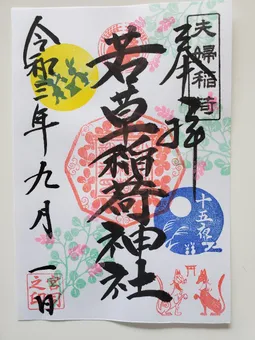 夫婦稲荷
奉拝
十五夜
若草稲荷神社
令和三年九月一日